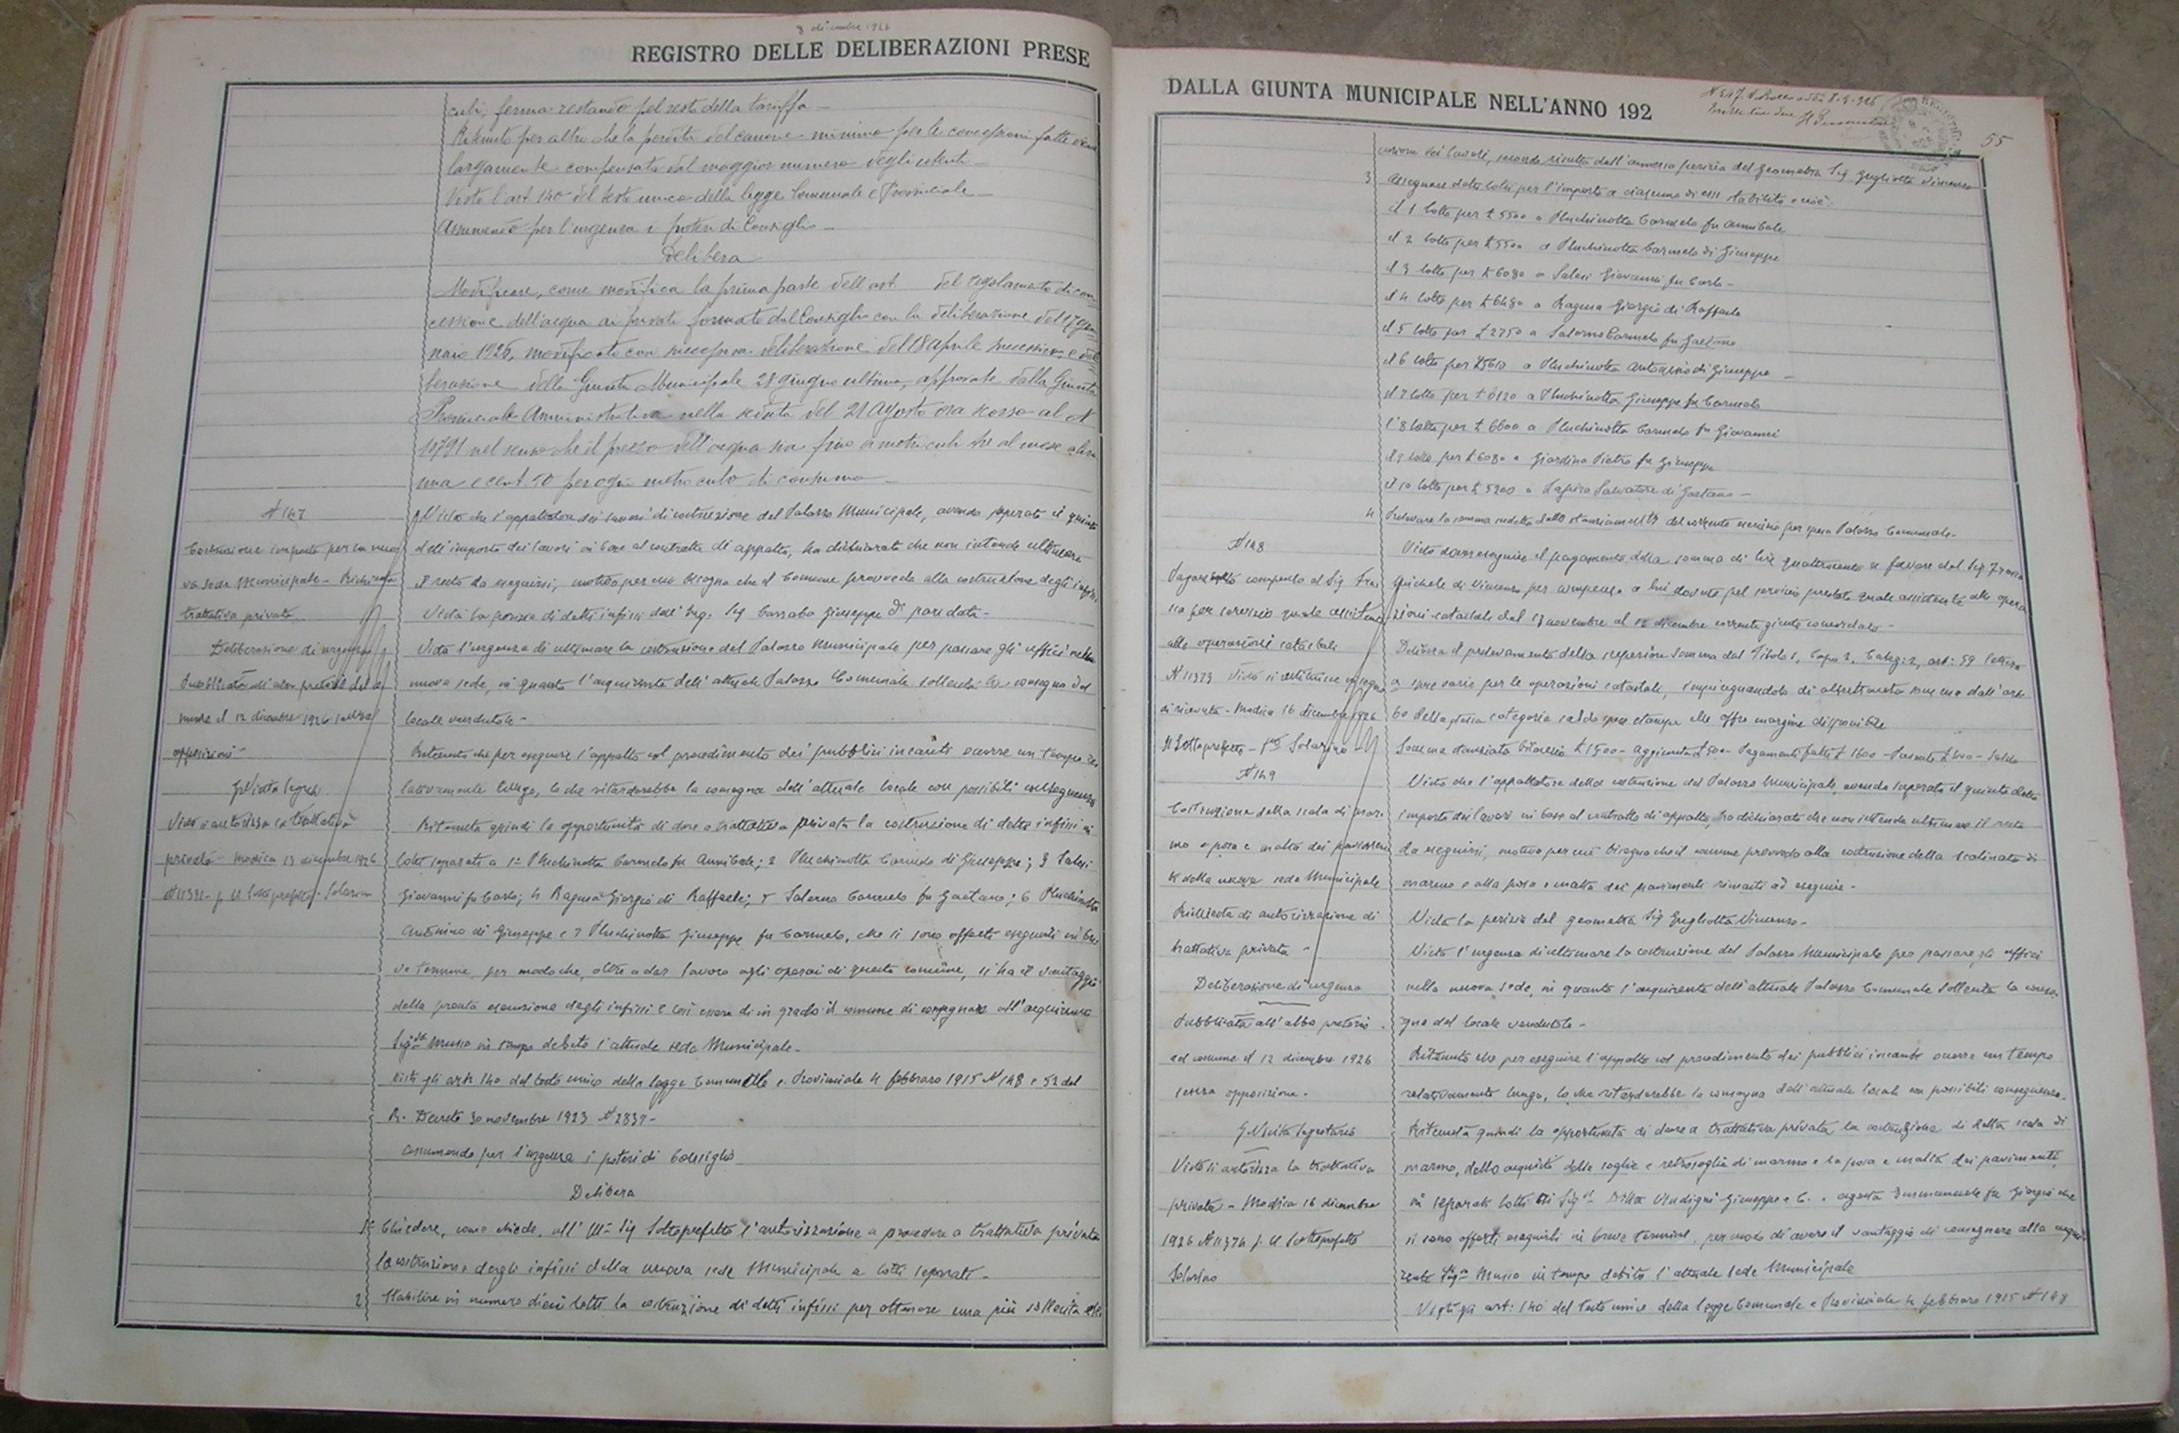 8 dicembre 1926
REGISTRO DELLE DELIBERAZIONI PRESE
cubi, ferma restando pel resto della tariffa
Ritenuto per altro che la perdita del canone minimo per le concessioni fatte viene
largamente compensata dal maggior numero degli utenti
Visto l'art 140 del testo unico della legge Comunale e Provinciale
Assumendo per l'urgenza i poteri di Consiglio
Delibera
Modificare, come modifica la prima parte dell'art del regolamento di con
cessione dell'acqua ai privati formato dal Consiglio con la deliberazione del 17 gen
naio 1926, modificato con successiva deliberazione del 18 aprile successivo e deli
berazione della Giunta Municipale 28 giugno ultimo, approvate dalla Giunta
Provinciale Amministrativa nella seduta del 21 Agosto ora scorso al N
nel senso che il prezzo dell'acqua sia fino a metri cubi tre al mese di lire
una e cent 50 per ogni metro cubo di consumo
N 147
Costruzione imposte per la nuo
va sede Municipale - Richiesta
trattativa privata
Deliberazione di urgenza
Pubblicata all'albo pretorio del co
mune il 12 dicembre 1926 senza
opposizioni
Visto si autorizza la trattativa
privata - Modica 13 dicembre 1926
Il Sottoprefetto - Solarino
Visto che l'appaltatore dei lavori di costruzione del Palazzo Municipale, avendo superato il quinto
dell'importo dei lavori in base al contratto di appalto, ha dichiarato che non intende ultimare
il resto da eseguirsi, motivo per cui bisogna che il Comune provveda alla costruzione degli infissi
Vista la perizia di detti infissi dell'Ing. Sig Cassaba Giuseppe di pari data -
Vista l'urgenza di ultimare la costruzione del Palazzo Municipale per passare gli uffici nella
nuova sede, in quanto l'acquirente dell'attuale Palazzo Comunale sollecita la consegna del
locale vendutole -
Ritenuto che per eseguire l'appalto col procedimento dei pubblici incanti occorre un tempo re
lativamente lungo, lo che ritarderebbe la consegna dell'attuale locale con possibili conseguenze
Ritenuta quindi la opportunità di dare a trattativa privata la costruzione di detti infissi in
lotti separati a 1° Pluchinotta Carmelo fu Annibale; 2 Pluchinotta Carmelo di Giuseppe; 3 Salesi
Giovanni fu Carlo; 4 Ragusa Giorgio di Raffaele; 5 Salerno Carmelo fu Gaetano; 6 Pluchinotta
Antonino di Giuseppe e 7 Pluchinotta Giuseppe fu Carmelo, che si sono offerti eseguirli in bre
ve termine, per modo che, oltre a dar lavoro agli operai di questo comune, si ha il vantaggio
della pronta esecuzione degli infissi e così essere di in grado il comune di consegnare all'acquirente
Sig.ra Musso in tempo debito l'attuale sede Municipale -
Visti gli arti 140 del testo unico della legge Comunale e Provinciale 4 febbraro 1915 N 148 e 52 del
R. Decreto 30 novembre 1923 N 2839 -
Assumendo per l'urgenza i poteri di Consiglio
Delibera
1° Chiedere, come chiede, all'Ill.mo Sig Sottoprefetto l'autorizzazione a procedere a trattativa privata
la costruzione degli infissi della nuova sede Municipale a lotti separati -
2 Stabilire in numero dieci lotti la costruzione di detti infissi per ottenere una più sollecita ese
DALLA GIUNTA MUNICIPALE NELL'ANNO 192
55
cuzione dei lavori, secondo risulta dall'annessa perizia del Geometra Sig Gugliotta Vincenzo
3 Assegnare detti lotti per l'importo a ciascuno di essi stabilito e cioè:
il 1 lotto per £ 5500 a Pluchinotta Carmelo fu Annibale
il 2 lotto per £ 5500 a Pluchinotta Carmelo di Giuseppe
il 3 lotto per £ 6030 a Salesi Giovanni fu Carlo -
il 4 lotto per £ 6480 a Ragusa Giorgio di Raffaele
il 5 lotto per £ 2750 a Salerno Carmelo fu Gaetano
il 6 lotto per £ 5610 a Pluchinotta Antonino di Giuseppe
il 7 lotto per £ 6120 a Pluchinotta Giuseppe fu Carmelo
l'8 lotto per £ 6600 a Pluchinotta Carmelo fu Giovanni
il 9 lotto per £ 6030 a Giardina Pietro fu Giuseppe
il 10 lotto per £ 5200 a Lapira Salvatore di Gaetano -
4 Prelevare la somma suddetta dallo stanziamento del corrente esercizio per spesa Palazzo Comunale -
N 148
Pagare compenso al Sig Fra
per servizio quale assistente
alle operazioni catastali
N 11373 Visto si restituisce in segno
di ricevuta - Modica 16 dicembre 1926
Il Sottoprefetto - Solarino
Visto doversi eseguire il pagamento della somma di lire quattrocento a favore del Sig
Michele di Vincenzo per compenso a lui dovuto pel servizio prestato quale assistente alle opera
zioni catastali dal 17 novembre al 12 dicembre corrente giusta concordato -
Delibera il prelevamento della superiore somma dal Titolo 1, Capo 2, Categ: 2, art: 59
a spese varie per le operazioni catastali, impinguandolo di altrettanta somma dall'art
60 della stessa categoria saldo spese stampe che offre margine disponibile
Somma stanziata bilancio £ 1500 - Aggiunta £ 500 - Pagamenti fatti £ 1600 - Presente £ 400 - Saldo
N 149
Costruzione della scala di mar-
mo e posa e malta dei pavimen
ti della nuova sede Municipale
Richiesta di autorizzazione di
trattativa privata -
Deliberazione di urgenza
Pubblicata all'albo pretorio
del comune il 12 dicembre 1926
senza opposizione.
Il Segretario
Visto si autorizza la trattativa
privata - Modica 16 dicembre
1926 N 11374 f. Il Sottoprefetto
Solarino
Visto che l'appaltatore della costruzione del Palazzo Municipale, avendo superato il quinto dello
importo dei lavori in base al contratto di appalto, ha dichiarato che non intende ultimare il resto
da eseguirsi, motivo per cui bisogna che il comune provveda alla costruzione della scalinata di
marmo e alla posa e malta dei pavimenti rimasti ad eseguire -
Vista la perizia del geometra Sig Gugliotta Vincenzo -
Vista l'urgenza di ultimare la costruzione del Palazzo Municipale per passare gli uffici
nella nuova sede, in quanto l'acquirente dell'attuale Palazzo Comunale sollecita la conse-
gna del locale vendutole -
Ritenuto che per eseguire l'appalto col procedimento dei pubblici incanti occorre un tempo
relativamente lungo, lo che ritarderebbe la consegna dell'attuale locale con possibili conseguenze.
Ritenuta quindi la opportunità di dare a trattativa privata la costruzione di detta scala di
marmo, dello acquisto delle soglie e retrosoglie di marmo e la posa e malta dei pavimenti
in separati lotti ai Sig.ri Ditta Vindigni Giuseppe e C. e Agosta Emmanuele fu Giorgio che
si sono offerti eseguirli in breve termine, per modo di avere il vantaggio di consegnare alla acqui
rente Sig.ra Musso in tempo debito l'attuale sede Municipale
Visti gli art: 140 del testo unico della legge Comunale e Provinciale 4 febbraro 1915 N 148